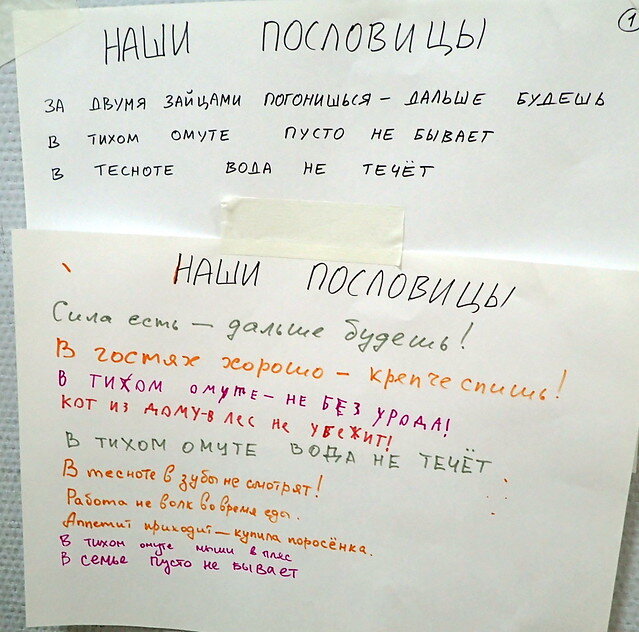 НАШИ ПОСЛОВИЦЫ
1
ЗА ДВУМЯ ЗАЙЦАМИ ПОГОНИШЬСЯ – ДАЛЬШЕ БУДЕШЬ
В ТИХОМ ОМУТЕ ПУСТО НЕ БЫВАЕТ
В ТЕСНОТЕ ВОДА НЕ ТЕЧЁТ
НАШИ ПОСЛОВИЦЫ
Сила есть – дальше будешь!
В гостях хорошо – крепче спишь!
В ТИХОМ ОМУТЕ – НЕ БЕЗ УРОДА!
КОТ ИЗ ДОМУ – В ЛЕС НЕ УБЕЖИТ!
В ТИХОМ ОМУТЕ ВОДА НЕ ТЕЧЁТ
В тесноте в зубы не смотрят!
Работа не волк во время еды.
Аппетит приходит – купила поросёнка.
В тихом омуте мыши в пляс
В семье пусто не бывает